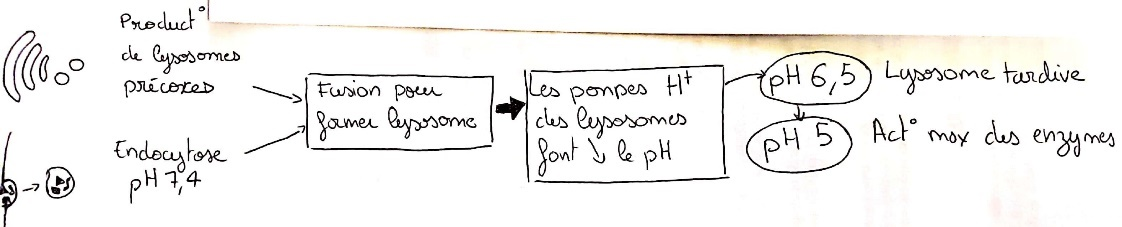 Product°
de lysosomes
précoces
Endocytose
pH 7,4
Fusion pour
former lysosome
Les pompes H⁺
des lysosomes
font ↘ le pH
pH 6,5 Lysosome tardive
pH 5 Act° max des enzymes